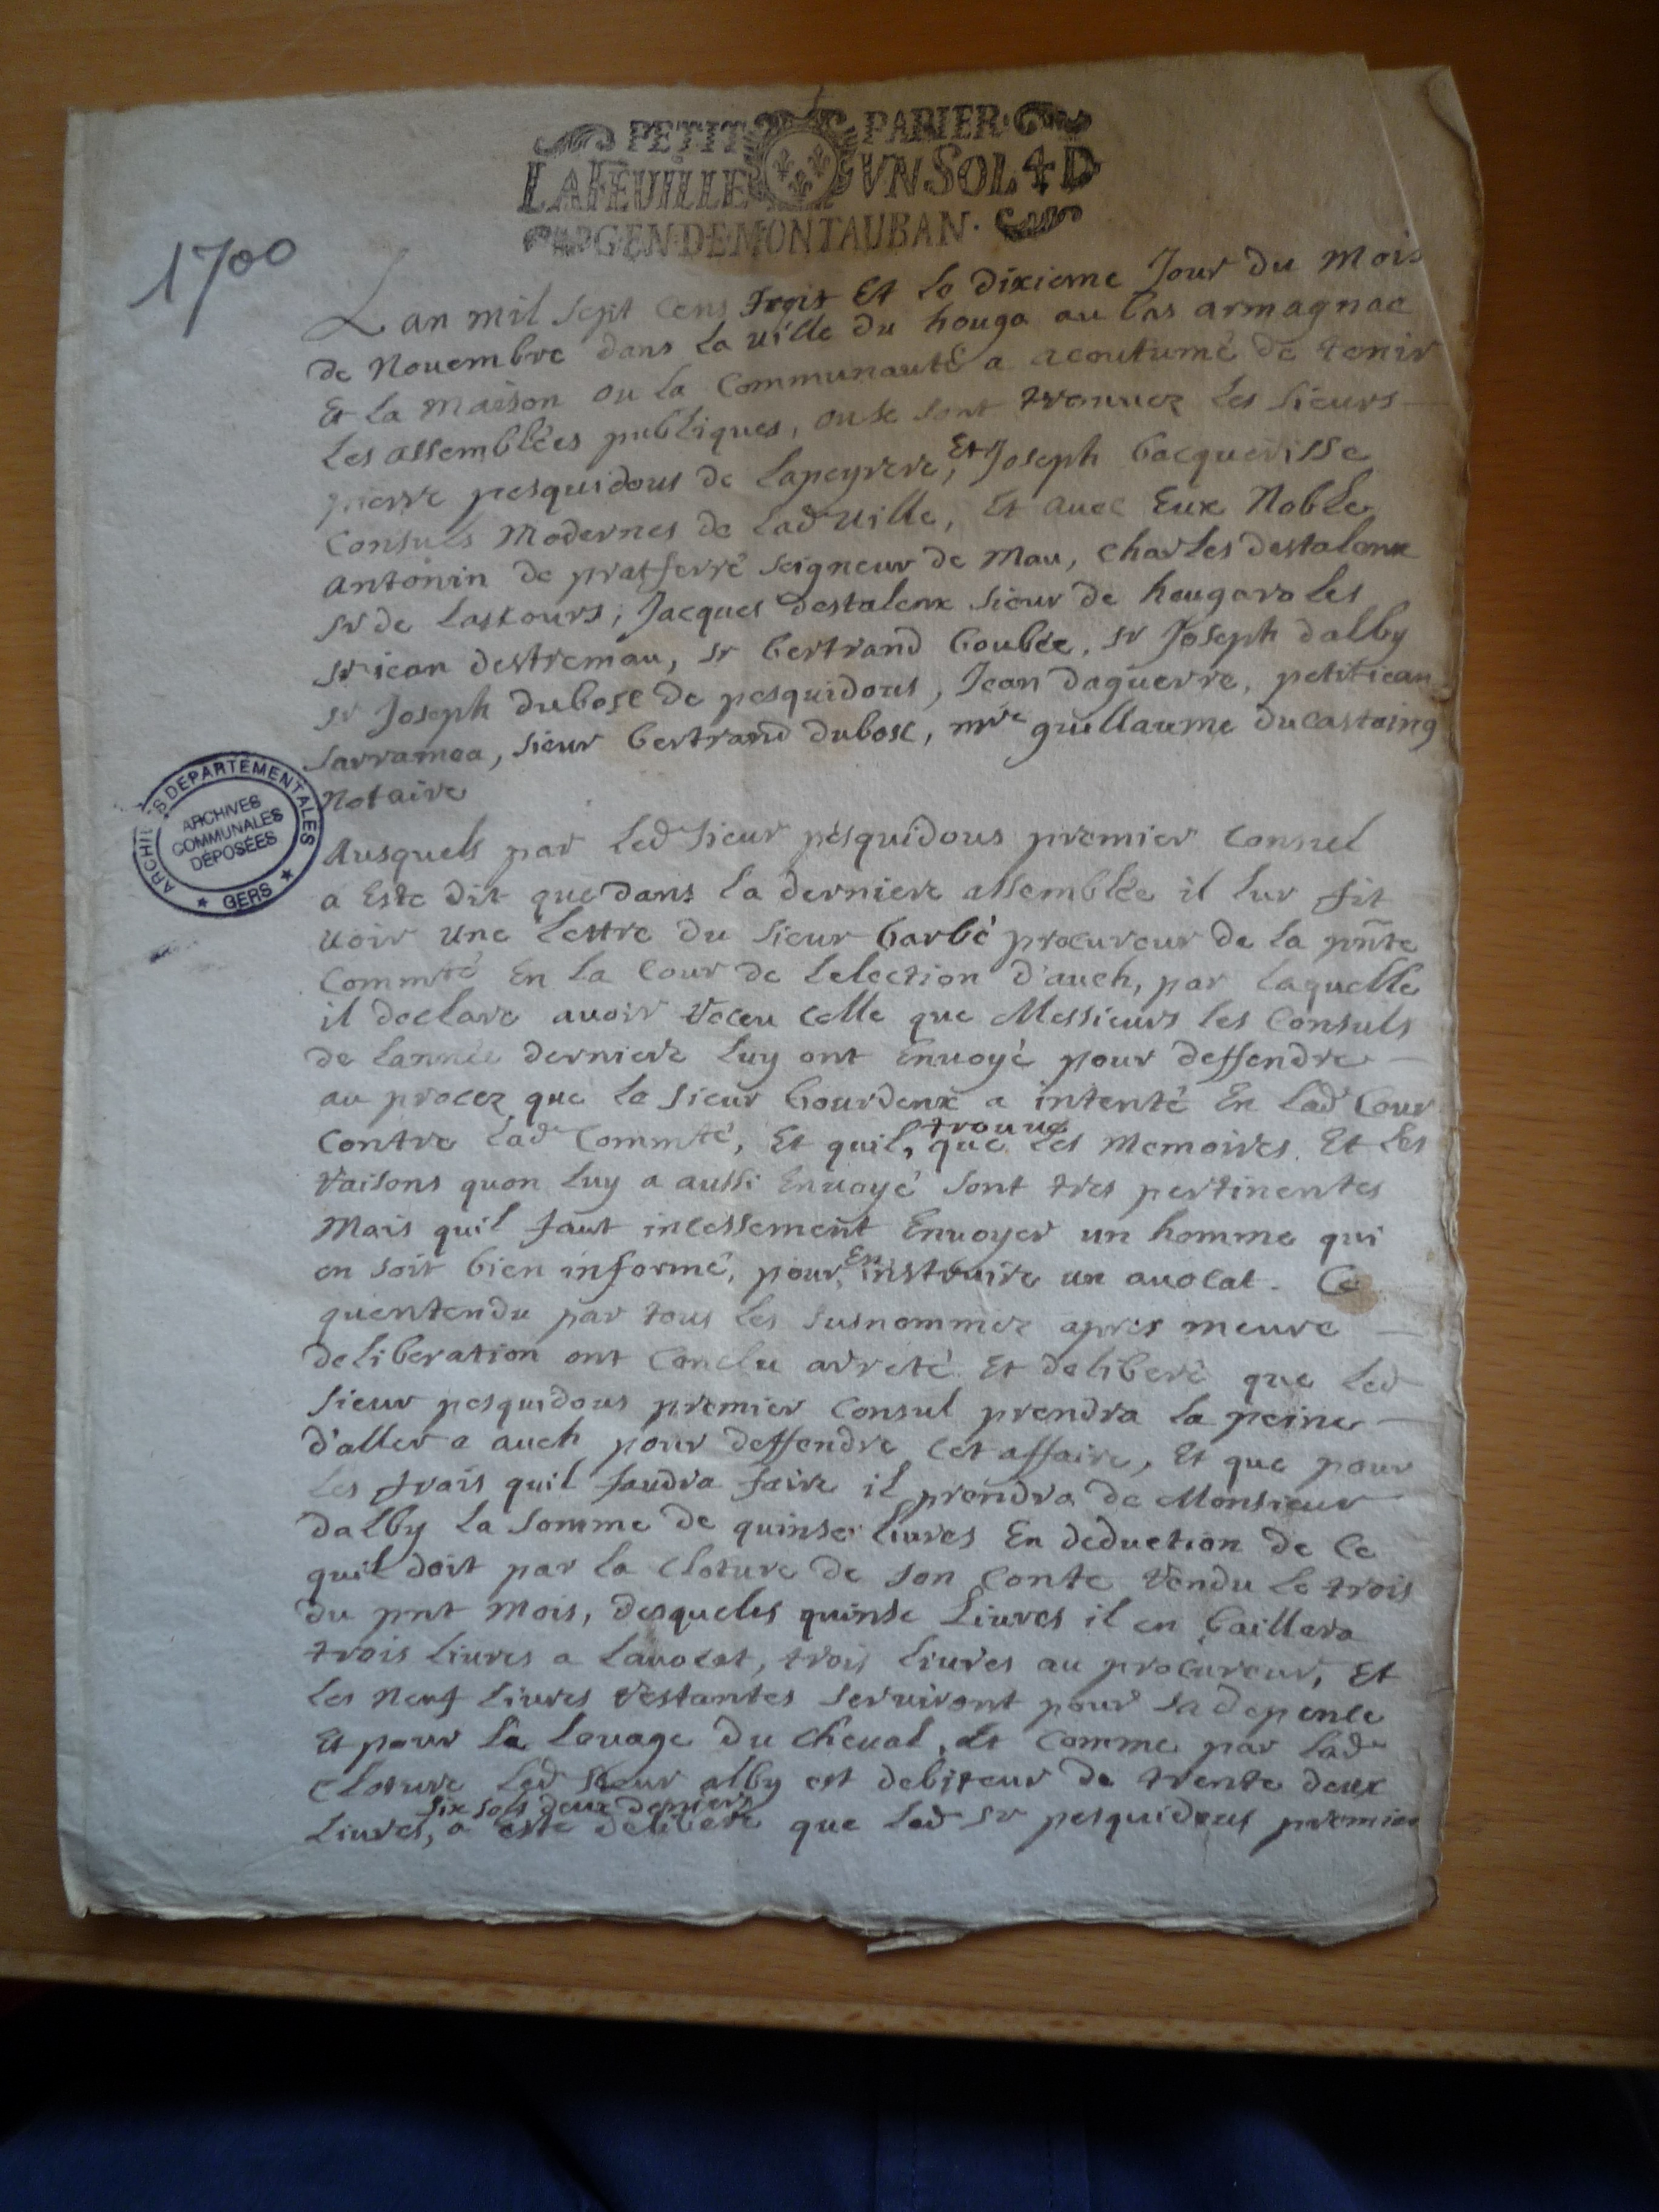 PETIT PAPIER
LAFEUILLE VNSOL4D
GEN·DEMONTAUBAN·
1700
Lan mil sept cens trois Et le dixieme Jour du Mois
de Nouembre dans la uille du houga au bas armagnac
Et la maison ou la Communauté a acoutumé de tenir
les assemblées publiques, ou se sont trouuez les sieurs
pierre pesquidous de Lapeyrere, Et Joseph bacquerisse
Consuls Modernes de lad uille, Et auec Eux Noble
antonin de pratferré seigneur de Mau, Charles destalenx
sr de lastours, Jacques destalenx sieur de hougaroles
sr jean destremau, sr bertrand boubée, sr Joseph dalby
sr Joseph dubosc de pesquidous, Jean daguerre, petit jean
sarramea, sieur bertrand dubosc, mre guillaume ducastaing
Notaire
ARCHIVES DEPARTEMENTALES
ARCHIVES
COMMUNALES
DÉPOSÉES
★ GERS ★
Ausquels par led sieur pesquidous premier consul
a Este dit que dans la derniere assemblée il lur fit
uoir une lettre du sieur barbé procureur de la pñte
Commté En la Cour de lelection d'auch, par laquelle
il declare auoir receu celle que Messieurs les Consuls
de lannée derniere luy ont Enuoyé pour deffendre
au procez que le sieur bourdenx a intenté En lad Cour
contre lade Commté, Et quil, trouue que les memoires Et les
raisons quon luy a aussi Enuoyé sont tres pertinentes
Mais quil faut incessement Enuoyer un homme qui
en soit bien informé, pour En instruire un auocat. Ce
quentendu par tous les susnommez apres meure
deliberation ont Conclu arreté Et deliberé que led
sieur pesquidous premier Consul prendra la peine
d'aller a auch pour deffendre cet affaire, Et que pour
les frais quil faudra faire il prendra de Monsieur
dalby la somme de quinse liures En deduction de ce
quil doit par la cloture de son conte rendu le trois
du pnt Mois, desqueles quinse Liures il en baillera
trois liures a lauocat, trois liures au procureur, Et
les neuf liures restantes seruiront pour sa depence
Et pour le louage du cheual, Et comme par lade
cloture led sieur alby est debiteur de trente deux
liures, six sols deux deniers a este deliberé que led sr pesquidous premier